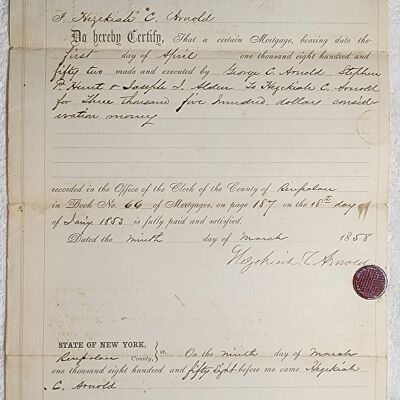 I, Hezekiah C. Arnold
Do hereby Certify, That a certain Mortgage, bearing date the
first day of April one thousand eight hundred and
fifty two made and executed by George C. Arnold Stephen
F. Hunt & Joseph I. Alden To Hezekiah C. Arnold
for Three thousand five hundred dollars consid
eration money
recorded in the Office of the Clerk of the County of Rensselaer
in Book No. 66 of Mortgages, on page 187 on the 18th day
of Jany. 1853 is fully paid and satisfied.
Dated the ninth day of March 1858
Hezekiah C Arnold
STATE OF NEW YORK,
Rensselaer County, } ss. On the ninth day of March
one thousand eight hundred and fifty eight before me came Hezekiah
C. Arnold